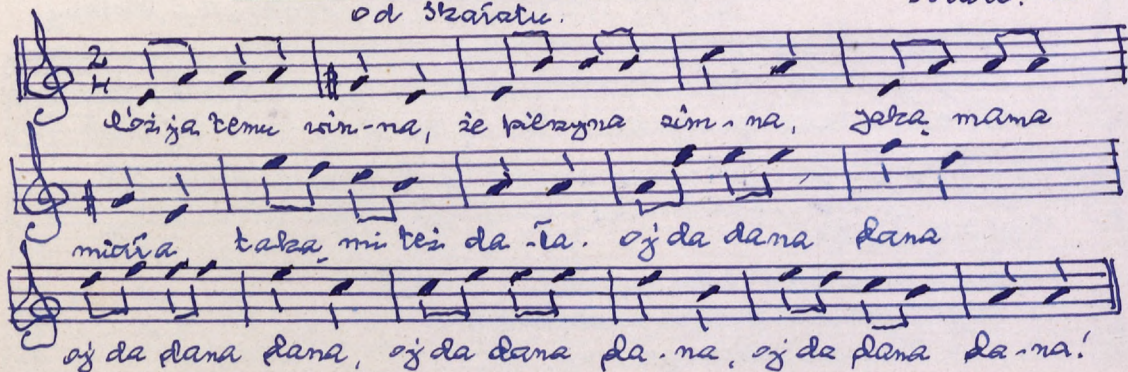 od szkarłatu.
Cóż ja temu win-na, że pierzyna zim-na, jaką mama
miała taką mi też da-ła. oj da dana dana
oj da dana dana, oj da dana da-na, oj da dana da-na!